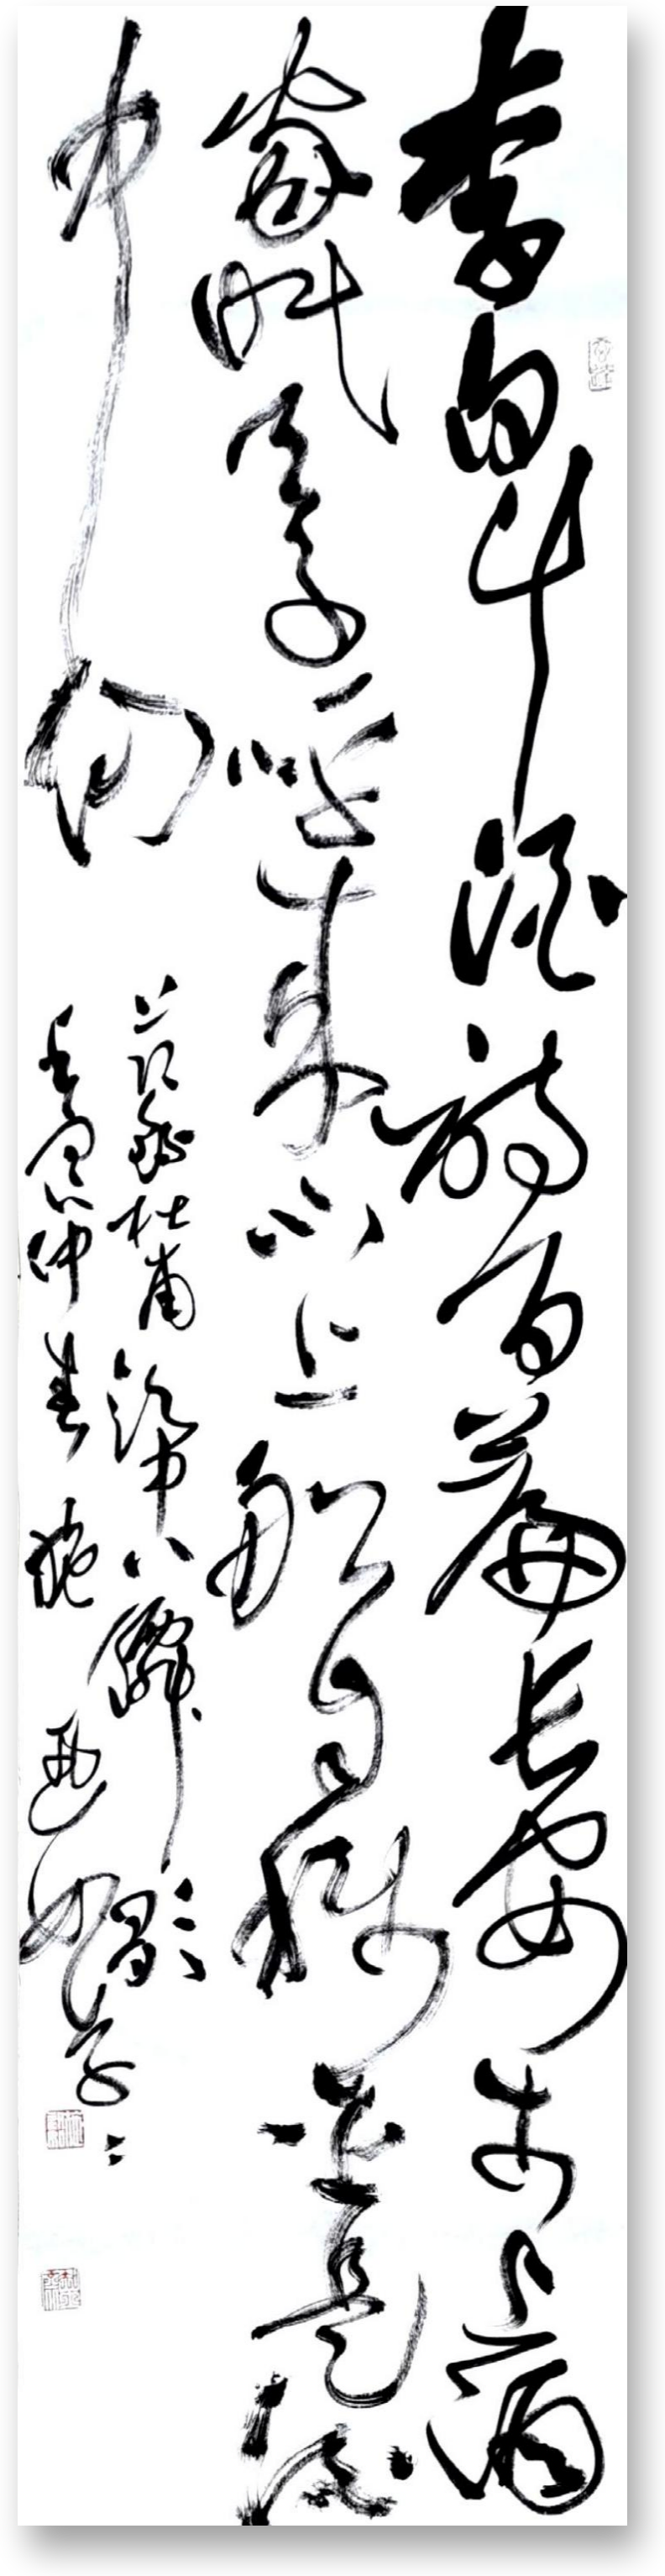 李白斗酒詩百篇長安市上酒
家眠天子呼来不上船自稱臣是酒
中仙
杜甫飲中八僊歌
壬寅仲春